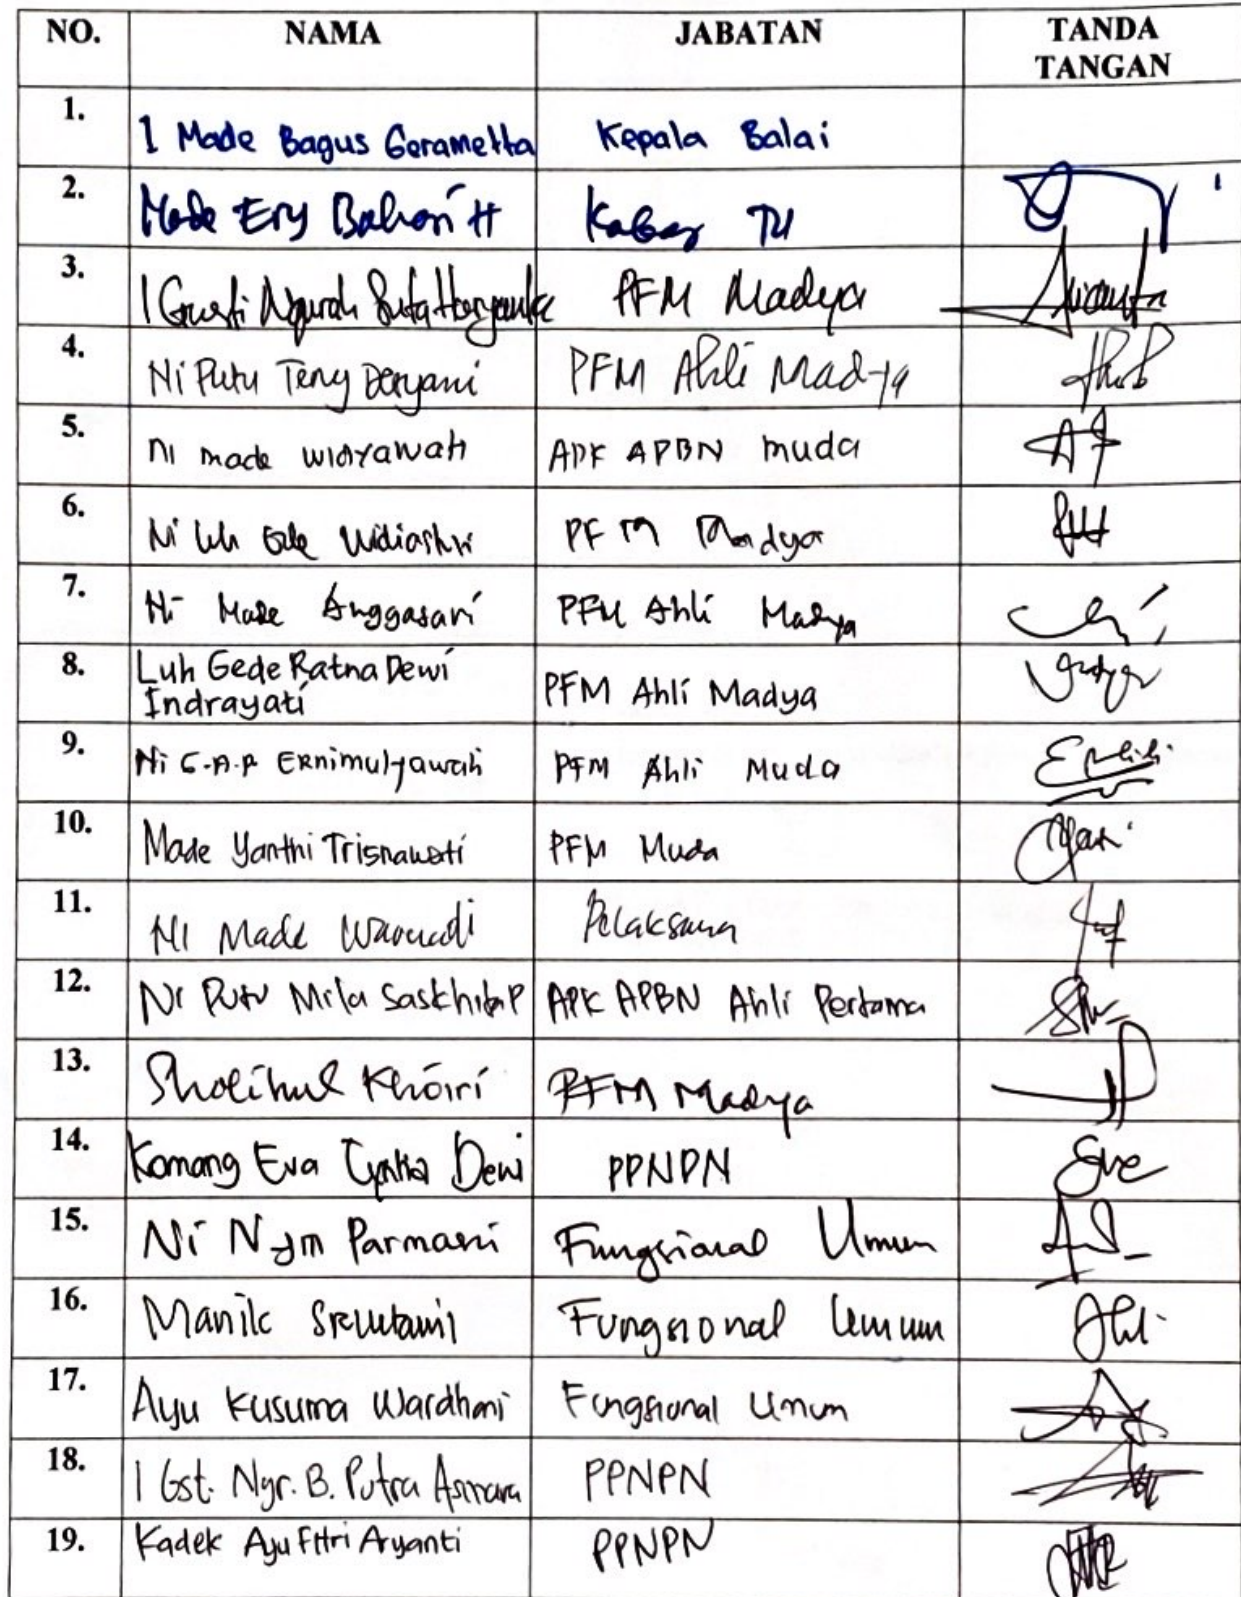 NO. NAMA JABATAN TANDA TANGAN
1. I Made Bagus Gerametta Kepala Balai
2. Made Ery Bahari H Kabag TU
3. I Gusti Ngurah PFM Madya
4. Ni Putu Teny Deryani PFM Ahli Madya
5. Ni made widyawati APK APBN muda
6. Ni Luh Gde Widiastri PFM Madya
7. Ni Made Anggasari PFM Ahli Madya
8. Luh Gede Ratna Dewi
Indrayati PFM Ahli Madya
9. Ni G.A.P Ernimulyawati PFM Ahli Muda
10. Made Yanthi Trisnawati PFM Muda
11. Ni Made Pelaksana
12. Ni Putu Mila Saskhita P APK APBN Ahli Pertama
13. Sholihul Khoiri PFM Madya
14. Komang Eva Cyntia Dewi PPNPN
15. Ni Nym Parmasni Fungsional Umum
16. Manik Fungsional Umum
17. Ayu Kusuma Wardhani Fungsional Umum
18. I Gst. Ngr. B. Putra Asmara PPNPN
19. Kadek Ayu Fitri Aryanti PPNPN